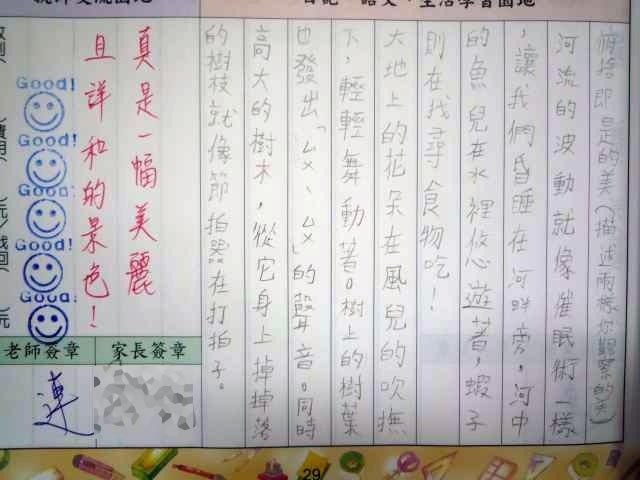 日記、語文、生活學習園地
俯拾即是的美(描述兩樣你觀察的美)
河流的波動就像催眠術一樣
,讓我們昏睡在河畔旁,河中
的魚兒在水裡悠遊著,蝦子
則在找尋食物吃!
大地上的花朵在風兒的吹撫
下,輕輕舞動著。樹上的樹葉
也發出「ㄙㄨ、ㄙㄨ」的聲音。同時
高大的樹木,從它身上掉掉落
的樹枝就像節拍器在打拍子。
真是一幅美麗
且詳和的景色!
Good!
Good!
Good!
Good!
Good!
家長簽章
老師簽章
連
29